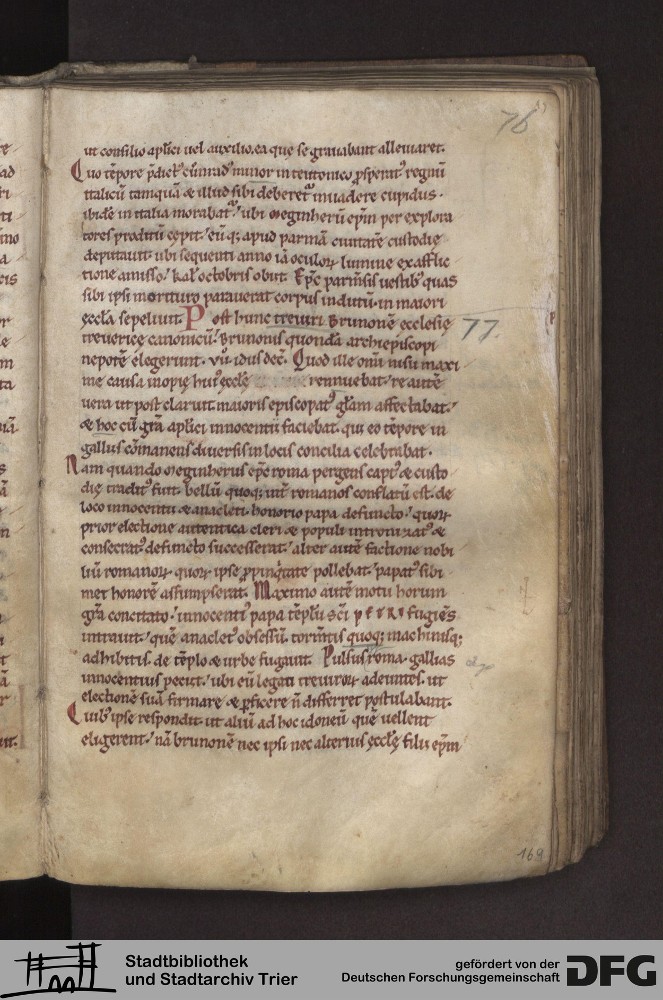 76
ut consilio aplici uel auxilio. ea que se grauabant alleuiaret.
Quo tēpore p̄dict᷒ cūnrad᷒ minor in teutonico ꝓsperit᷒ regnū
italicū tamquā & illud sibi deberet᷑ inuadere cupidus.
ibidē in italia morabat᷑. ubi meginherū ep̄m per explora
tores proditū cepit. eūq; apud parmā ciuitatē custodię
deputauit. ubi sequenti anno iā oculoꝝ lumine ex afflic
tione amisso. kal̄ octobris obiit. Ep̄c parm̄sis uestib᷒ quas
sibi ipsi morituro parauerat corpus indutū in maiori
ęccl̄a sepeliuit. Post hunc treuiri Brunonē ecclesię
77.
treuericę canonicū. Brunonis quondā archiepiscopi
nepotē elegerunt. vii. idus dec̄. Quod ille om̄i nisu maxi
me causa inopię hui᷒ ęccl̄ę rennuebat. re autē
uera ut post claruit maioris episcopat᷒ gl̄am affectabat.
& hoc cū gr̄a aplici innocentii faciebat. qui eo tēpore in
gallus cōmanens diuersis in locis concilia celebrabat.
Nam quando meginherus ep̄c roma pergens capt᷒ & custo
dię tradit᷒ fuit. bellū quoq; int̄ romanos conflatū est. de
loco innocentii & anacleti. honorio papa defuncto. quoꝝ
prior electione autentica cleri & populi intronizat᷒ &
consecrat᷒ defuncto successerat. alter autē factione nobi
liū romanoꝝ quoꝝ ipse ꝓpinq̇tate pollebat. papat᷒ sibi
met honorē assumpserat. Maximo autē motu horum
gr̄a concitato. innocenti᷒ papa tēplū sc̄i petri fugiēs
intrauit. quē anaclet᷒ obsessū. torm̄tis quoq; machinisq;
adhibitis. de tēplo & urbe fugauit. Pulsus roma. gallias
innocentius peciit. ubi eū legati treuiroꝝ adeuntes. ut
electionē suā firmare & ꝑficere n̄ differret postulabant.
Quib᷒ ipse respondit. ut aliū ad hoc idoneū quē uellent
eligerent. nā brunonē nec ipsi nec alterius ęccl̄ę filii ep̄m
169
Stadtbibliothek
und Stadtarchiv Trier
gefördert von der
Deutschen Forschungsgemeinschaft
DFG